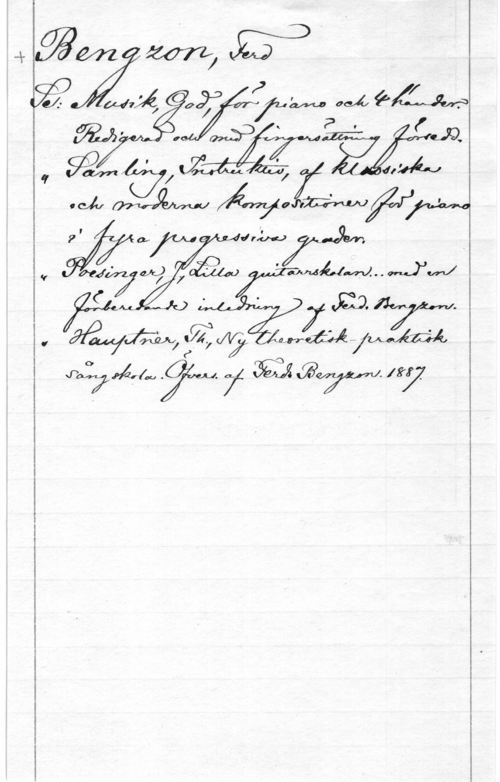 + Bengzon, Ferd
Se: Musik, God, för piano och 4 händer.
Redigerad och med fingersättning försedd.
" Samling, Instruktiv, af klassiska
och moderna kompositioner för piano
i fyra progressiva grader.
" Poesinger, J, Lilla guitarrskolan... med en
förberedande inledning af Ferd. Bengzon.
" Hauptner, Th., Ny theoretisk-praktisk
sångskola. Öfvers. af Ferd. Bengzon. 1887.